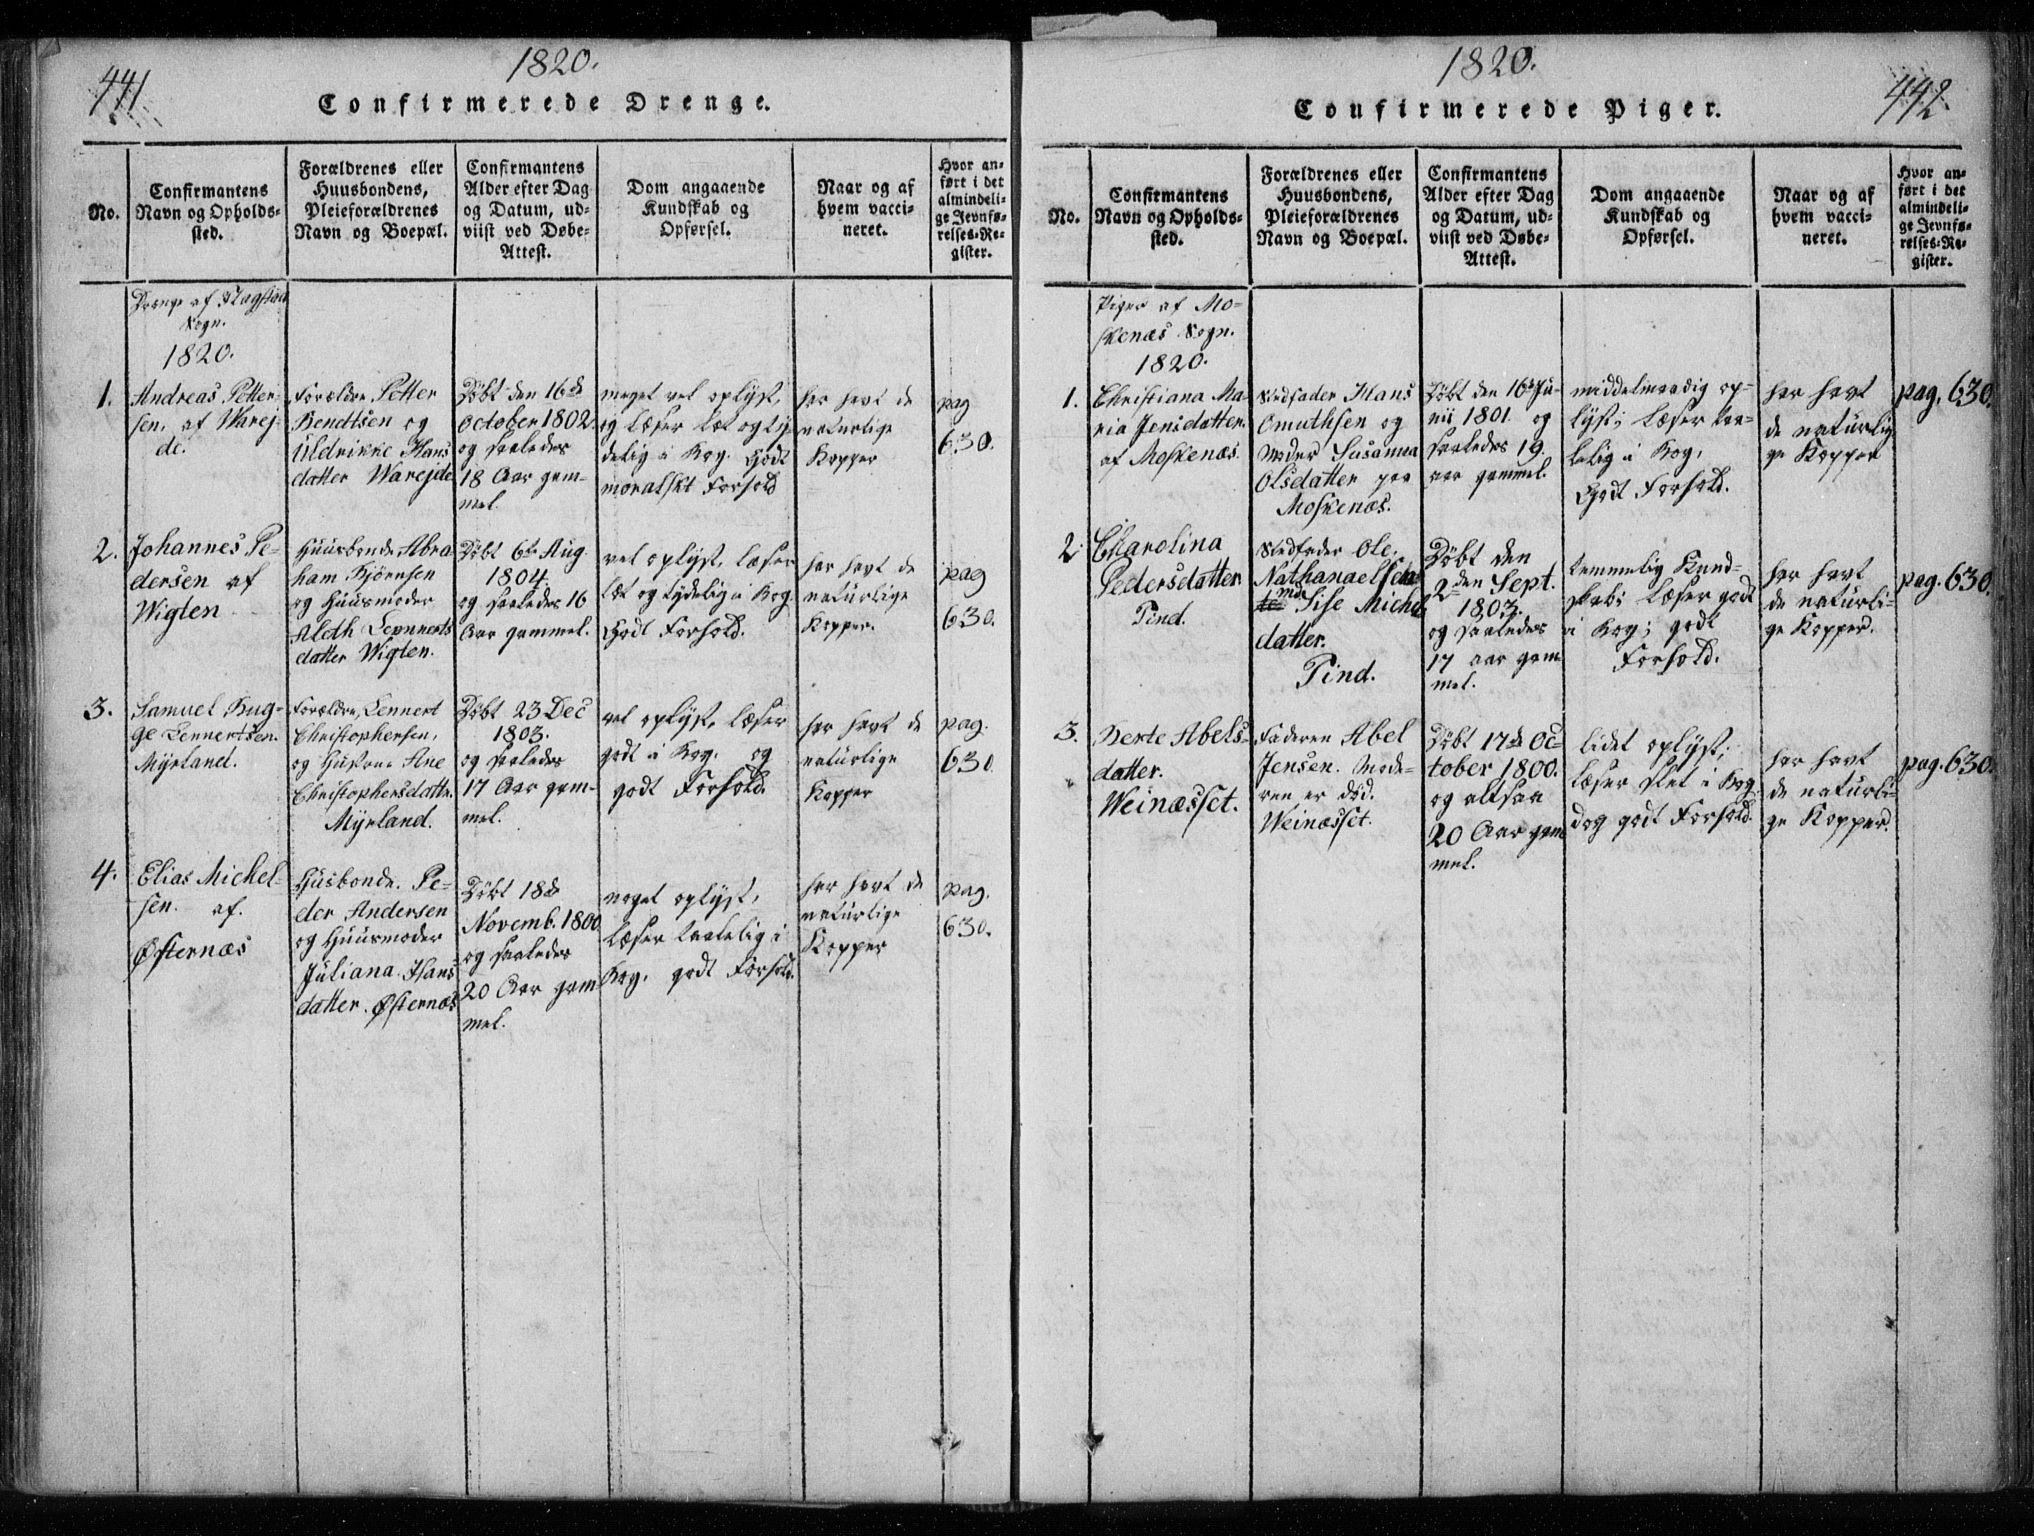 441
1820.
Confirmerede Drenge.
No.
Confirmantens
Navn og Opholds-
sted.
Forældrenes eller
Huusbondens,
Pleieforældrenes
Navn og Boepæl.
Confirmantens
Alder efter Dag
og Datum, ud-
viist ved Døbe-
Attest.
Dom angaaende
Kundskab og
Opførsel.
Naar og af
hvem vacci-
neret.
Hvor an-
ført i det
almindeli-
ge Jevnfø-
relses-Re-
gister.
Drenge af Flagstad
Sogn.
1820.
1.
Andreas Petter-
sen. af Warej-
de.
Forældre Petter
Bendtsen og
Uldrikke Hans
datter Warejde
Döbt den 16de
October 1802.
og saaledes
18 Aar gam-
mel.
meget vel oplyst,
og læser læt og ty
delig i Bog. Godt
moralskt Forhold
har havt de
naturlige
Kopper
pag
630.
2.
Johannes Pe-
dersen af
Wigten
Huusbonde Abra
ham Bjørnsen
og Huusmoder
Aleth Lennerts
datter Wigten.
Döbt 6te Aug.
1804.
og saaledes 16
Aar gammel.
vel oplyst, læser
læt og tydelig i Bog
Godt Forhold.
har havt de
naturlige
Kopper.
pag
630.
3.
Samuel Bug-
ge Lennertsen.
Myrland.
Forældre, Lennert
Christophersen,
og Hustrue Ane
Christophersdatter.
Myrland.
Döbt 23 Dec
1803.
og saaledes
17 Aar gam-
mel.
vel oplyst, læser
godt i Bog. og
godt Forhold.
har havt de
naturlige
Kopper
pag.
630
4.
Elias Michel-
sen. af.
Østernæs
Husbonde. Pe-
der Andersen
og Huusmoder
Juliana Hans
datter. Østernæs
Döbt 18de
Novemb. 1800
og saaledes
20 Aar gam-
mel.
noget oplyst,
læser taalelig i
Bog, godt Forhold.
har havt de
naturlige
Kopper
pag.
630.
1820.
442
Confirmerede Piger.
No.
Confirmantens
Navn og Opholds-
sted.
Forældrenes eller
Huusbondens,
Pleieforældrenes
Navn og Boepæl.
Confirmantens
Alder efter Dag
og Datum, ud-
viist ved Døbe-
Attest.
Dom angaaende
Kundskab og
Opførsel.
Naar og af
hvem vacci-
neret.
Hvor an-
ført i det
almindeli-
ge Jevnfø-
relses-Re-
gister.
Piger af Mo-
skenæs Sogn.
1820.
1.
Christiana Ma
ria Jensdatter.
af Moskenæs.
Stedfader Hans
Omuthsen og
Moder Susanna
Olsdatter paa
Moskenæs.
Döbt den 16de Ju-
nii 1801. og
saaledes 19.
aar gammel.
middelmaadig op-
lyst; læser taa-
lelig i Bog,
Godt Forhold.
har havt
de naturlig
ge Kopper
pag. 630.
2
Charolina
Pedersdatter
Tind.
Stedfader Ole
Nathanaelsen
Mod Sise Michel
datter.
Tind.
Döbt den
2den Sept.
1803.
og saaledes
17 aar gam
mel.
temmelig Kund-
skab; læser godt
i Bog; godt
Forhold.
har havt
de naturli-
ge Kopper.
pag. 630
3.
Berte Abels-
datter.
Weinæsset.
Faderen Abel
Jensen. Mode-
ren er død.
Weinæsset.
Döbt 17de Oc-
tober 1800.
og altsaa
20 Aar gam
mel.
lidet oplyst;
læser slet i Bog
dog godt Forhold
har havt
de naturli-
ge Kopper.
pag. 630.